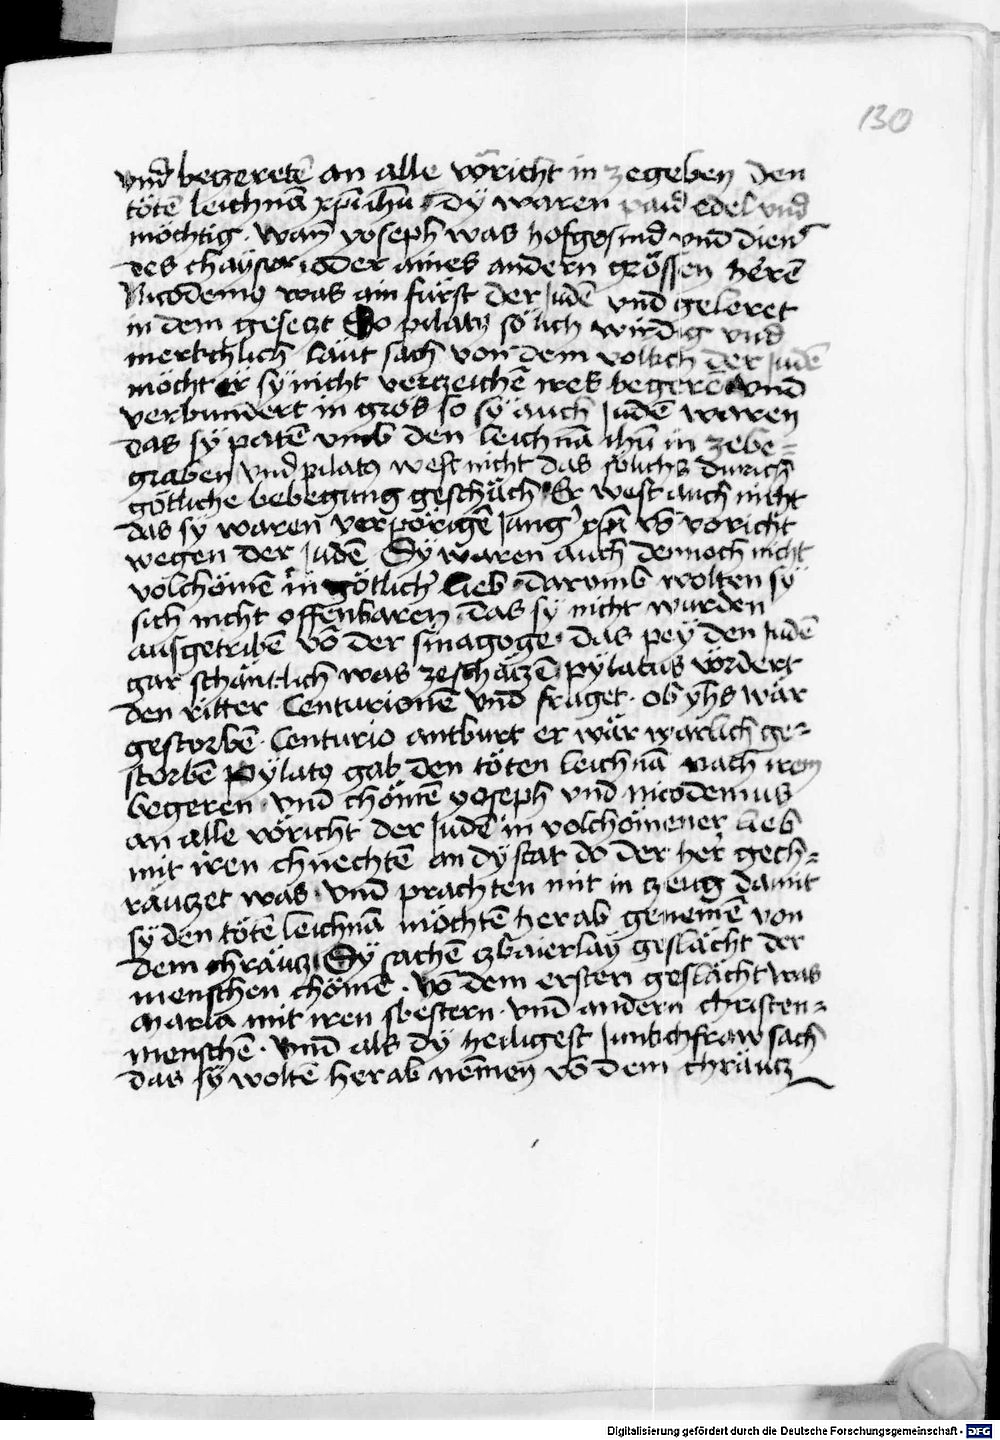 130
vnd begeretē an alle vöricht in zegeben den
tötē leichnā xp̄i ihū dy waren paid edel vnd
möchtig · wan̄ yoseph was hofgesind vnd dien̄
des chaÿser oder aines andern grössen herē
Nicodemꝰ was ain fürst der judē vnd geleret
in dem gesetzt Do pilatꝰ sölich wirdig vnd
merkchlich läut sach von dem volkch der judē
möcht er sy nicht verzeichē ires begerē vnd
verbundert in grös so sy auch judē waren
das sÿ patē vmb den leichnā ihū in zebe-
graben vnd pilatꝰ west nicht das sölichs durich
götliche bebegung geschäch Er west auch nicht
das sy waren verpörigē jung' xp̄i vō voricht
wegen der judē Sÿ waren auch dennoch nicht
volchömē in götlich' lieb · darumb wolten sÿ
sich nicht offenbaren · das sy nicht wurden
ausgetribē vō der sinagoge · das pey den judē
gar schäntlich was zeschätzē pÿlatus vördert
den ritter Centurionē vnd fraget · ob yhs wär
gestorbē · Centurio antburt er wär wärlich ge-
storbē pÿlatꝰ gab den töten leichnā nach irem
begeren · vnd chömē yoseph vnd nicodemus
an alle vöricht der judē in volchömener lieb
mit iren chnechtē an dy stat do der her gech-
räutzet was · vnd prachten mit in tzeug damit
sÿ den tötē leichnā möchtē herab genemē von
dem chräutz Sÿ sachē tzbaierlay geslächt der
menschen chömē · vō dem ersten geslächt was
maria mit iren sbestern · vnd andern christen-
menschē · vnd als dy heiligest junkchfraw sach
das sÿ woltē herab nemen vō dem chräutz
Digitalisierung gefördert durch die Deutsche Forschungsgemeinschaft - DFG